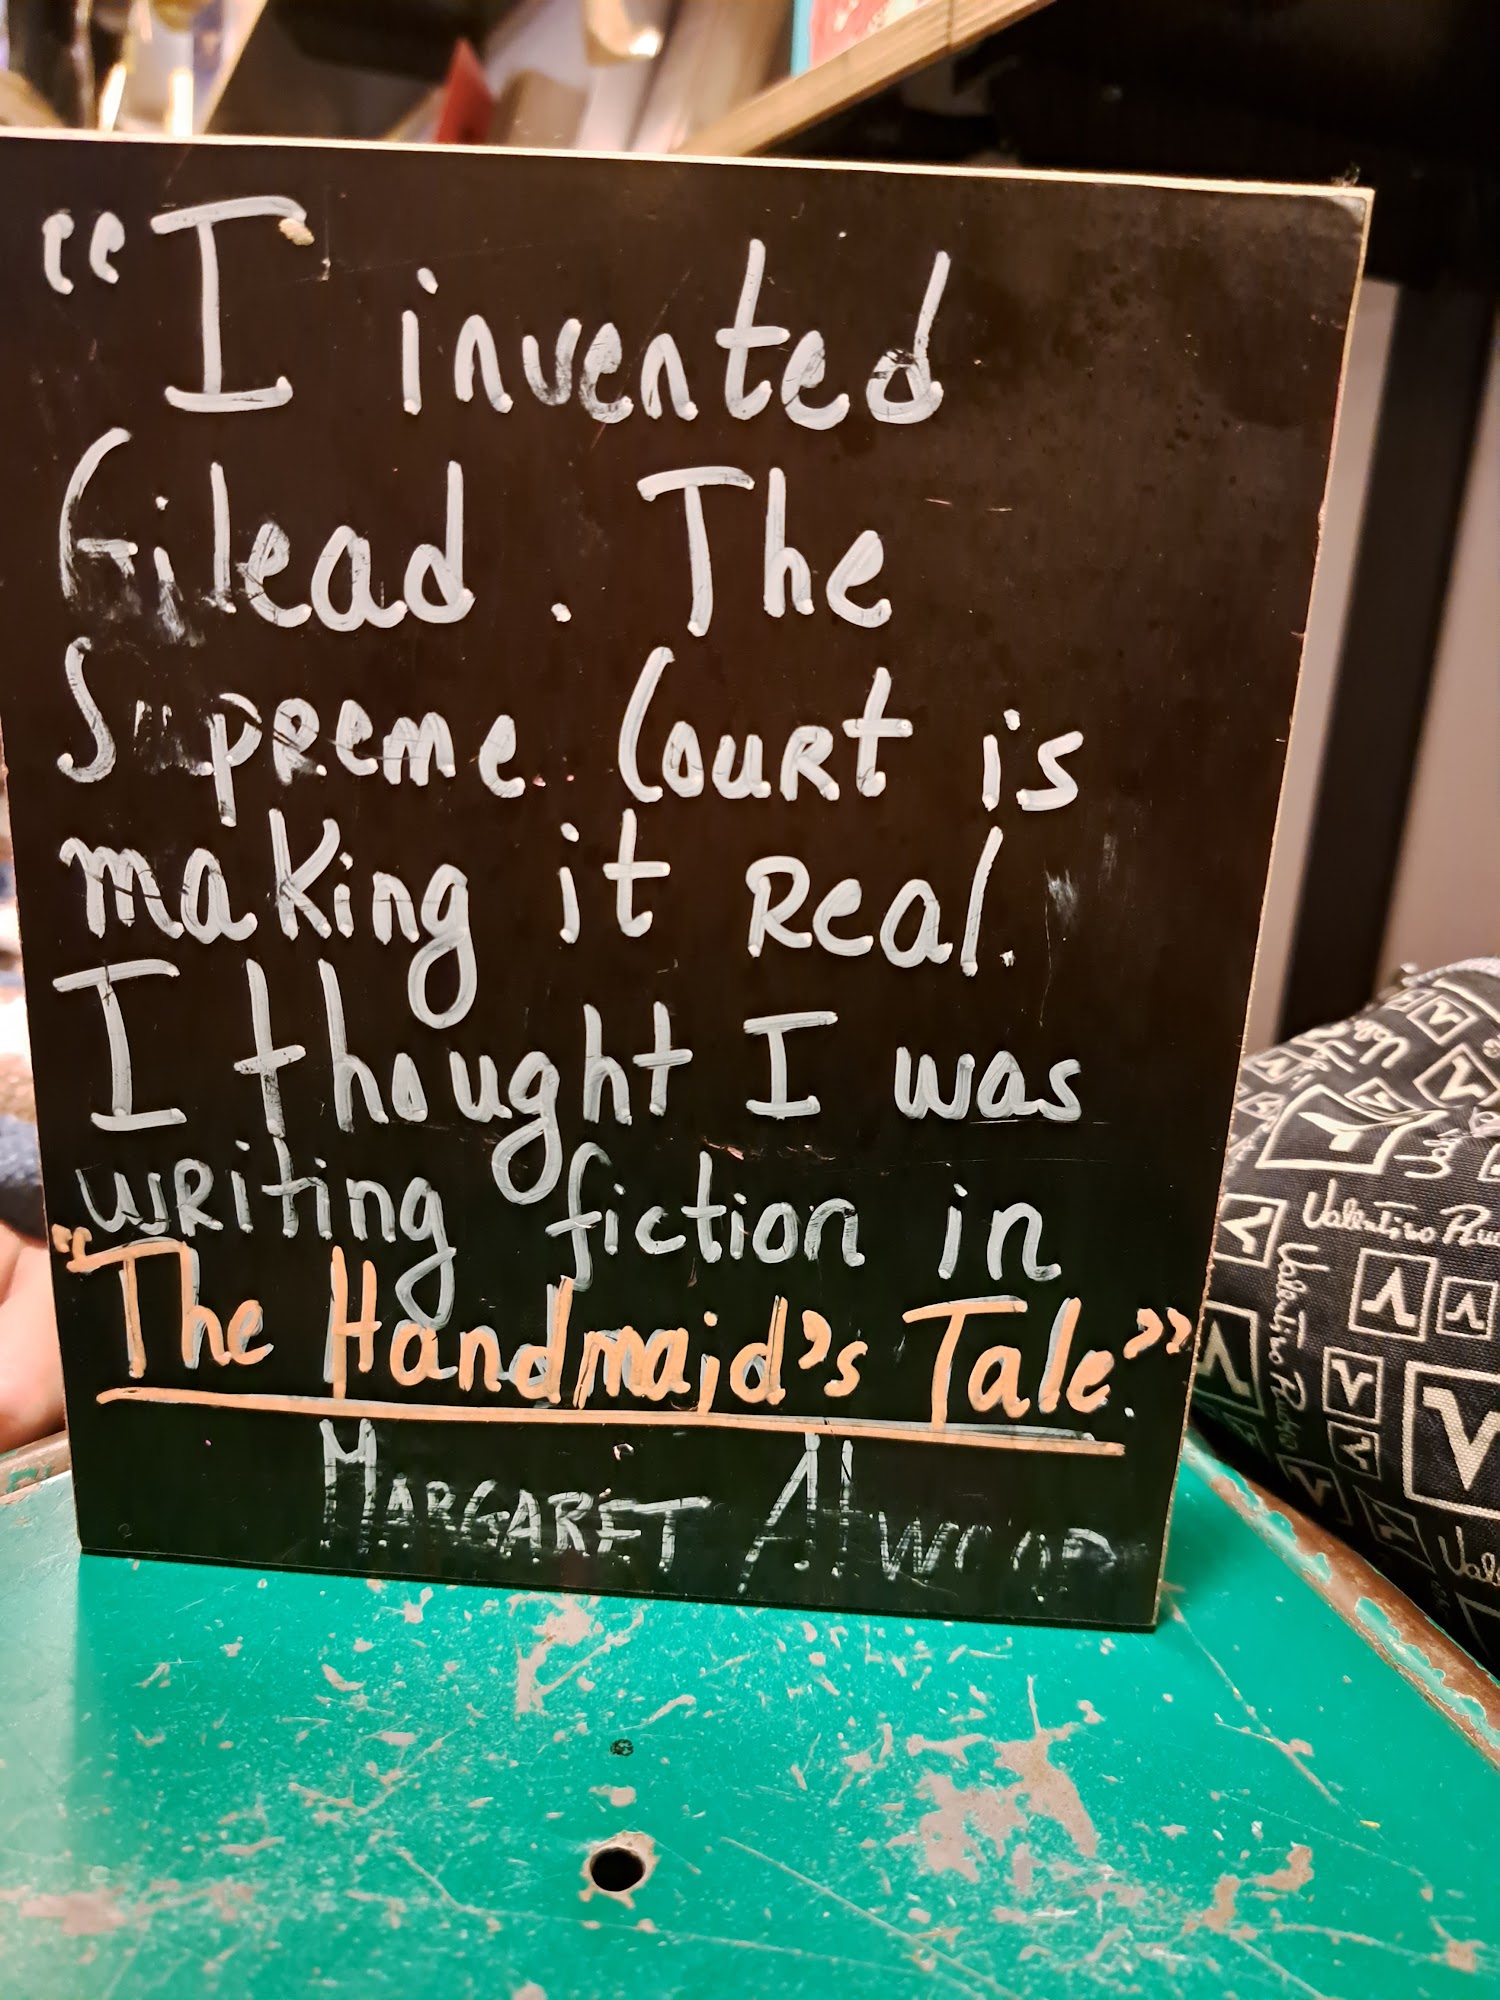 “I invented
Gilead. The
Supreme Court is
making it real.
I thought I was
writing fiction in
“The Handmaid's Tale”.
MARGARET ATWOOD
Valentino